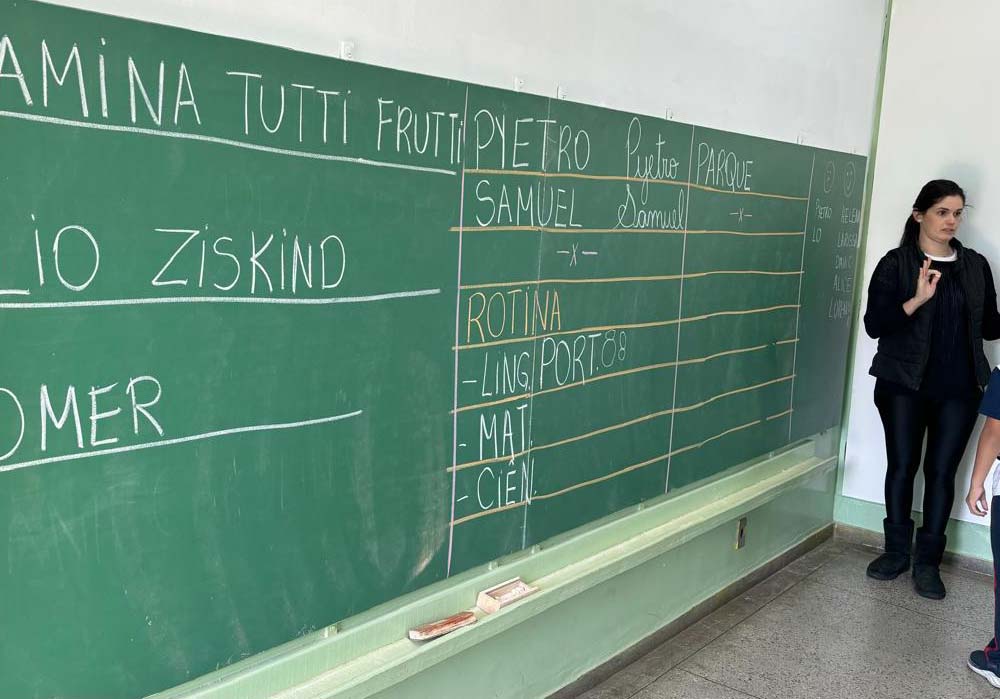 AMINA TUTTI FRUTTI
IO ZISKIND
OMER
PYETRO Pyetro PARQUE
SAMUEL Samuel -x-
-x-
ROTINA
- LING. PORT. 88
- MAT.
- CIÊN.
PIETRO HELENA
LO LARISSA
DAVI C
ALICE
LORENA